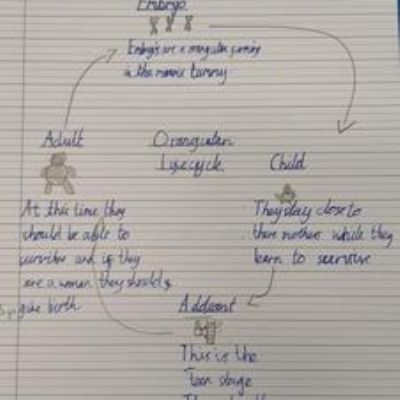 Embryo
Embryo's are a orangutan
in the mamas tummy
Adult
Orangutan
Lifecycle
Child
At this time they
should be able to
survive and if they
are a woman they should
give birth
They stay close to
there mothers while they
learn to searvive
This is the
Teen stage